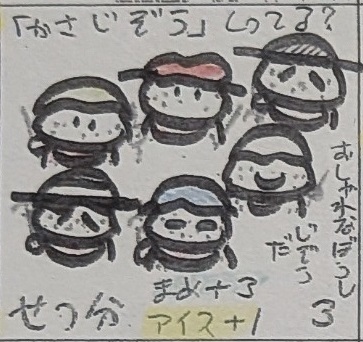 「かさじぞう」しってる?
むしゃ水るぼうし
じぞう
だ
まめ+3
アイス+1
せつ分
3